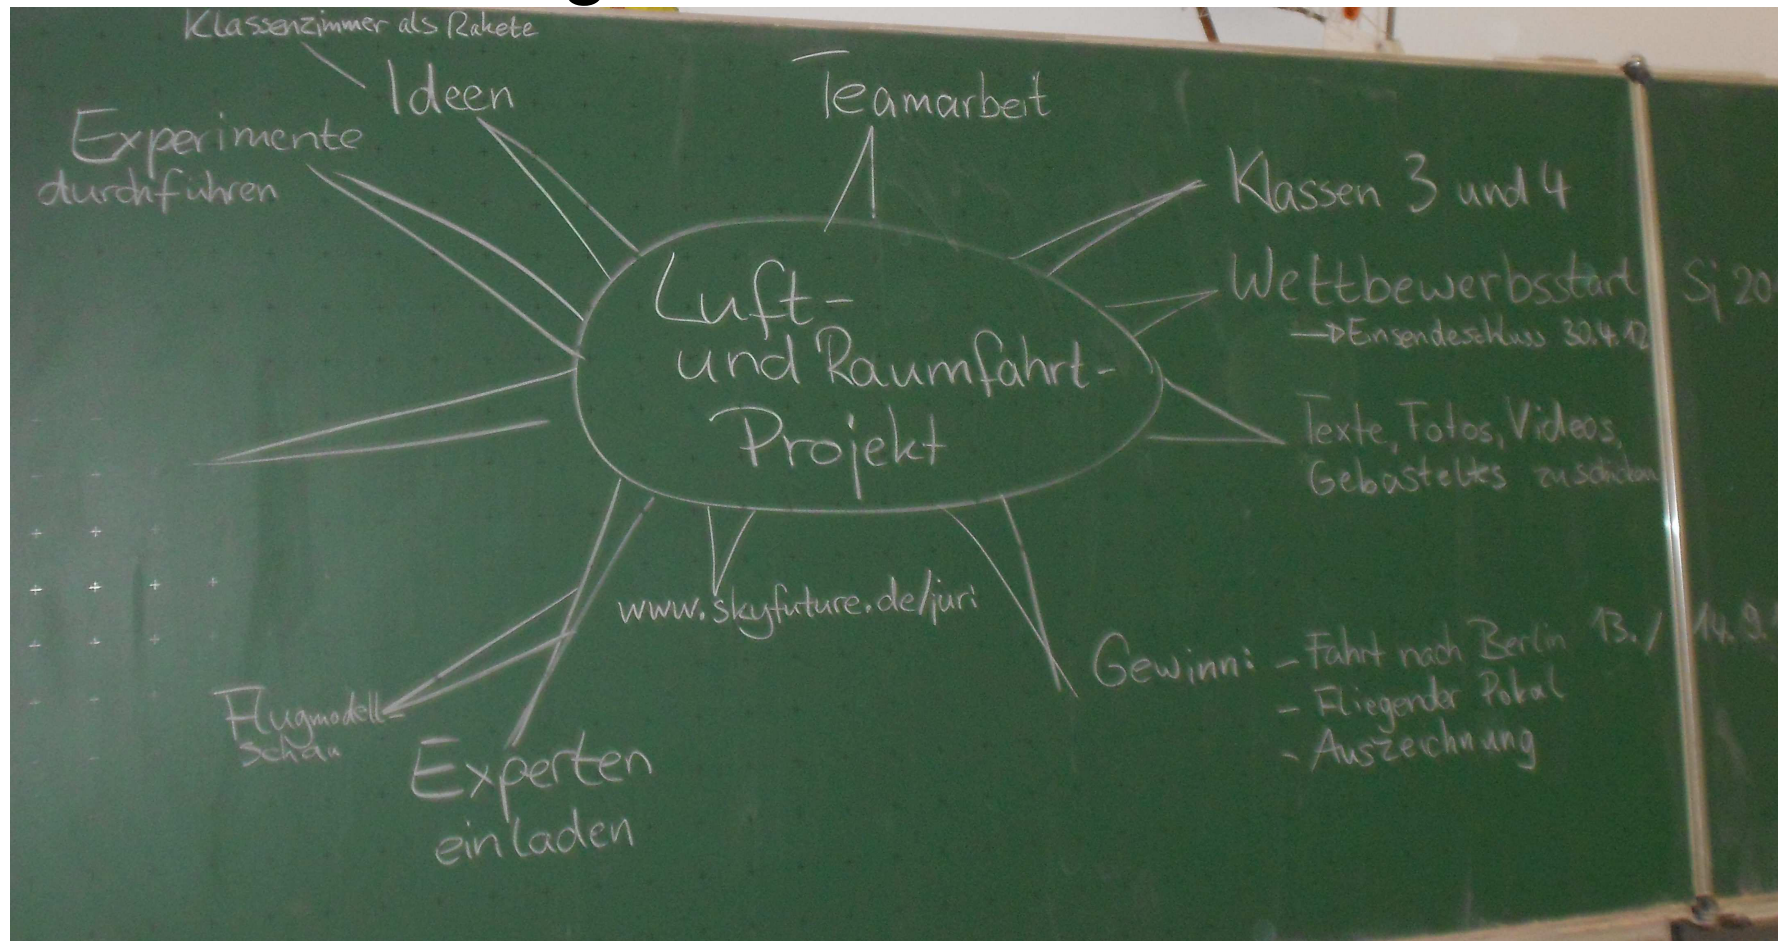 Klassenzimmer als Rakete
Ideen
Teamarbeit
Experimente
durchführen
Klassen 3 und 4
Wettbewerbsstart Sj 20
→ Einsendeschluss 30.4.12
Luft-
und Raumfahrt-
Projekt
Texte, Fotos, Videos,
Gebasteltes zuschicken
www.skyfuture.de/juri
Gewinn: - Fahrt nach Berlin 13./14.9.
- Fliegender Pokal
- Auszeichnung
Flugmodell-
schau
Experten
einladen